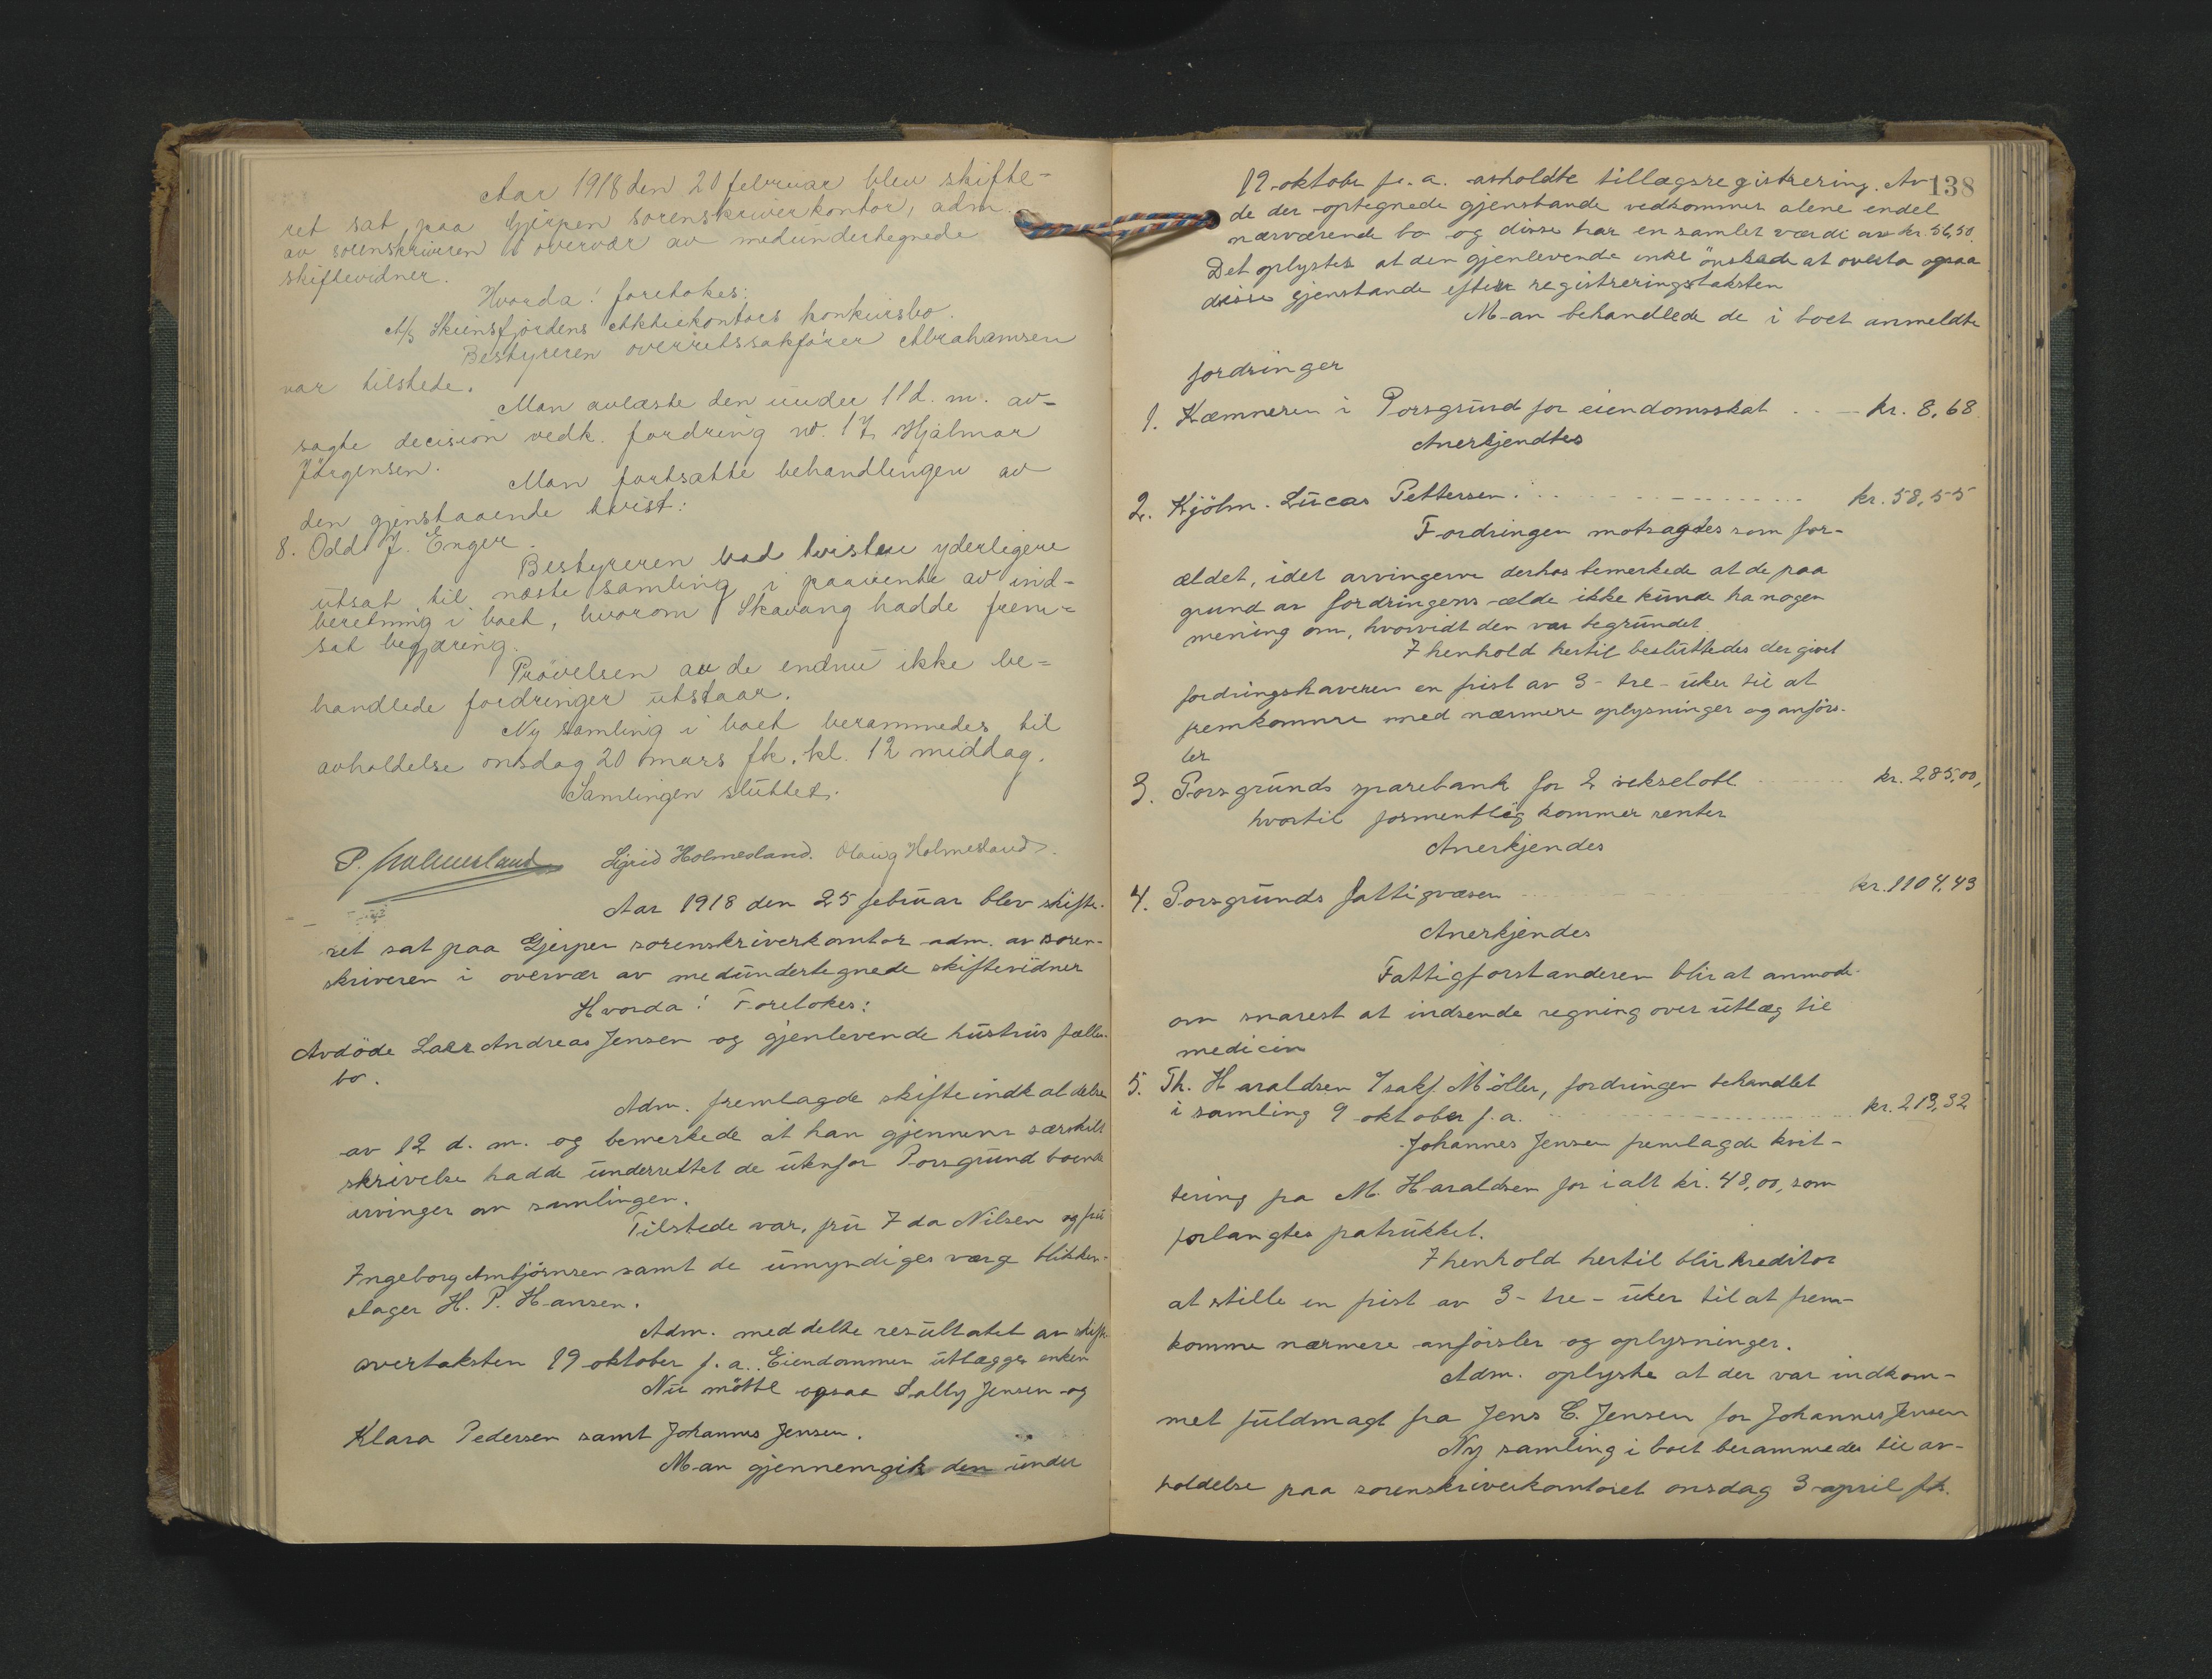 Aar 1918 den 20 februar blev skifte-
ret sat paa Gjerpen sorenskriverkontor, adm.
av sorenskriveren i overvær av medundertegnede
skiftevidner.
Hvorda! foretokes:
A/s Skiensfjordens Aktiekontors konkursbo.
Bestyreren overretssakfører Abrahamsen
var tilstede.
Man avlæste den under 11 d. m. av-
sagte decision vedk. fordring no. 17 Hjalmar
Jörgensen.
Man fortsatte behandlingen av
den gjenstaaende tvist:
8. Odd J. Enger.
Bestyreren bad tvisten yderligere
utsat til næste samling i paavente av ind-
beretning i boet, hvorom Skavang hadde frem-
sat begjæring.
Prövelsen av de endnu ikke be-
handlede fordringer utstaar.
Ny samling i boet berammedes til
avholdelse onsdag 20 mars fk. kl. 12 middag.
Samlingen sluttet.
P. Holmesland Sigrid Holmesland. Olaug Holmesland.
Aar 1918 den 25 februar blev skifte-
ret sat paa Gjerpen sorenskriverkontor adm. av soren-
skriveren i overvær av medundertegnede skiftevidner
Hvorda! Foretokes:
Avdöde Lars Andreas Jensen og gjenlevende hustrus fælles-
bo.
Adm. fremlagde skifteindkaldelse
av 12 d. m. og bemerkede at han gjennem særskilt
skrivelse hadde underrettet de utenfor Porsgrund boende
arvinger om samlingen.
Tilstede var, fru Ida Nilsen og fru
Ingeborg Ambjörnsen samt de umyndiges værge blikken-
slager H. P. Hansen.
Adm. meddelte resultatet av skifte-
overtaksten 19 oktober f. a. Eiendommen utlægges enken
Nu mötte ogsaa Sally Jensen og
Klara Pedersen samt Johannes Jensen.
Man gjennemgik den under
138
19 oktober f. a. avholdte tillægsregistrering. Av
de der optegnede gjenstande vedkommer alene endel
nærværende bo og disse har en samlet værdi av kr. 56,50.
Det oplystes at den gjenlevende enke önskede at overta ogsaa
disse gjenstande efter registreringstaksten
Man behandlede de i boet anmeldte
fordringer
1. Kæmneren i Porsgrund for eiendomsskat . . — kr. 8,68.
Anerkjendtes
2. Kjölm. Lucas Pettersen . . . kr. 58,55
Fordringen motsagdes som for-
ældet, idet arvingerne derhos bemerkede at de paa
grund av fordringens ælde ikke kunde ha nogen
mening om, hvorvidt den var begrundet.
I henhold hertil besluttedes der givet
fordringshaveren en frist av 3 - tre - uker til at
fremkomme med nærmere oplysninger og anförs-
ler
3. Porsgrunds sparebank for 2 vekselobl. . . . kr. 285,00,
hvortil formentlig kommer renter
Anerkjendes
4. Porsgrunds fattigvæsen . . . kr. 1104,43
Anerkjendes
Fattigforstanderen blir at anmode
om snarest at indsende regning over utlæg til
medicin
5. Th. Haraldsen v/sakf. Möller, fordringen behandlet
i samling 9 oktober f. a. . . . kr. 213,32
Johannes Jensen fremlagde kvit-
tering fra M. Haraldsen for ialt kr. 48,00, som
forlangtes fratrukket.
I henhold hertil blir kreditor
at stille en frist av 3 - tre - uker til at frem-
komme nærmere anförsler og oplysninger.
Adm. oplyste at der var indkom-
met fuldmagt fra Jens C. Jensen for Johannes Jensen
Ny samling i boet berammedes til av-
holdelse paa sorenskriverkontoret onsdag 3 april fk.